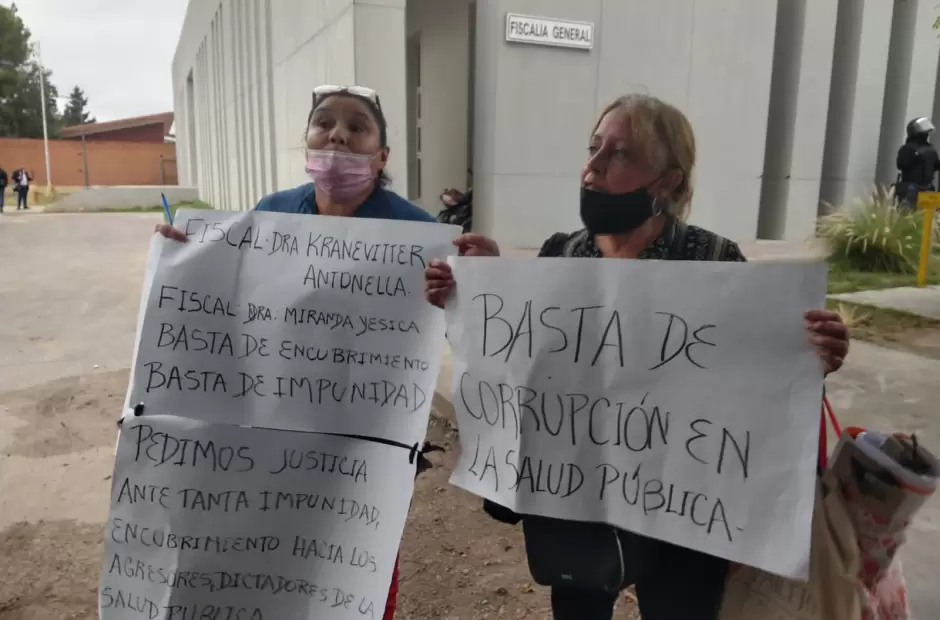 FISCALIA GENERAL
FISCAL: DRA KRANEVITTER
ANTONELLA.
FISCAL: DRA: MIRANDA YESICA
BASTA DE ENCUBRIMIENTO
BASTA DE IMPUNIDAD
PEDIMOS JUSTICIA
ANTE TANTA IMPUNIDAD,
ENCUBRIMIENTO HACIA LOS
AGRESORES, DICTADORES DE LA
SALUD PÚBLICA
BASTA DE
CORRUPCIÓN EN
LA SALUD PÚBLICA-